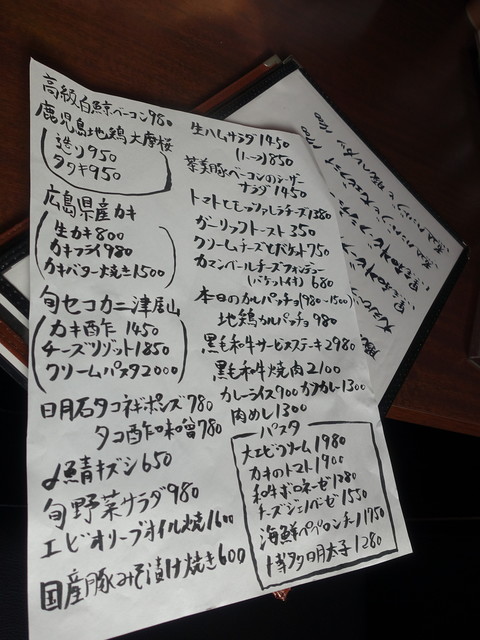 高級白鯨ベーコン980
鹿児島地鶏 大摩桜
造り950
タタキ950
広島県産カキ
生カキ800
カキフライ980
カキバター焼き1500
旬セコカニ津居山
カキ酢 1450
チーズリゾット1850
クリームパスタ2000
明石タコネギポンズ780
タコ酢味噌780
〆鯖キズシ650
旬野菜サラダ980
エビオリーブオイル焼1600
国産豚みそ漬け焼き600
生ハムサラダ1450
(ハーフ)850
茶美豚ベーコンのシーザー
サラダ1450
トマトとモッツァレラチーズ1380
ガーリックトースト350
クリームチーズとバケット750
カマンベールチーズフォンデュー
(バケット付)680
本日のカルパッチョ(980~1500)
地鶏カルパッチョ980
黒毛和牛サービスステーキ2980
黒毛和牛焼肉2100
カレーライス900 カツカレー1300
肉めし1300
パスタ
大エビクリーム1980
カキのトマト1900
和牛ボロネーゼ1280
チーズジェノベーゼ1550
海鮮ペペロンチーノ1750
博多明太子1280